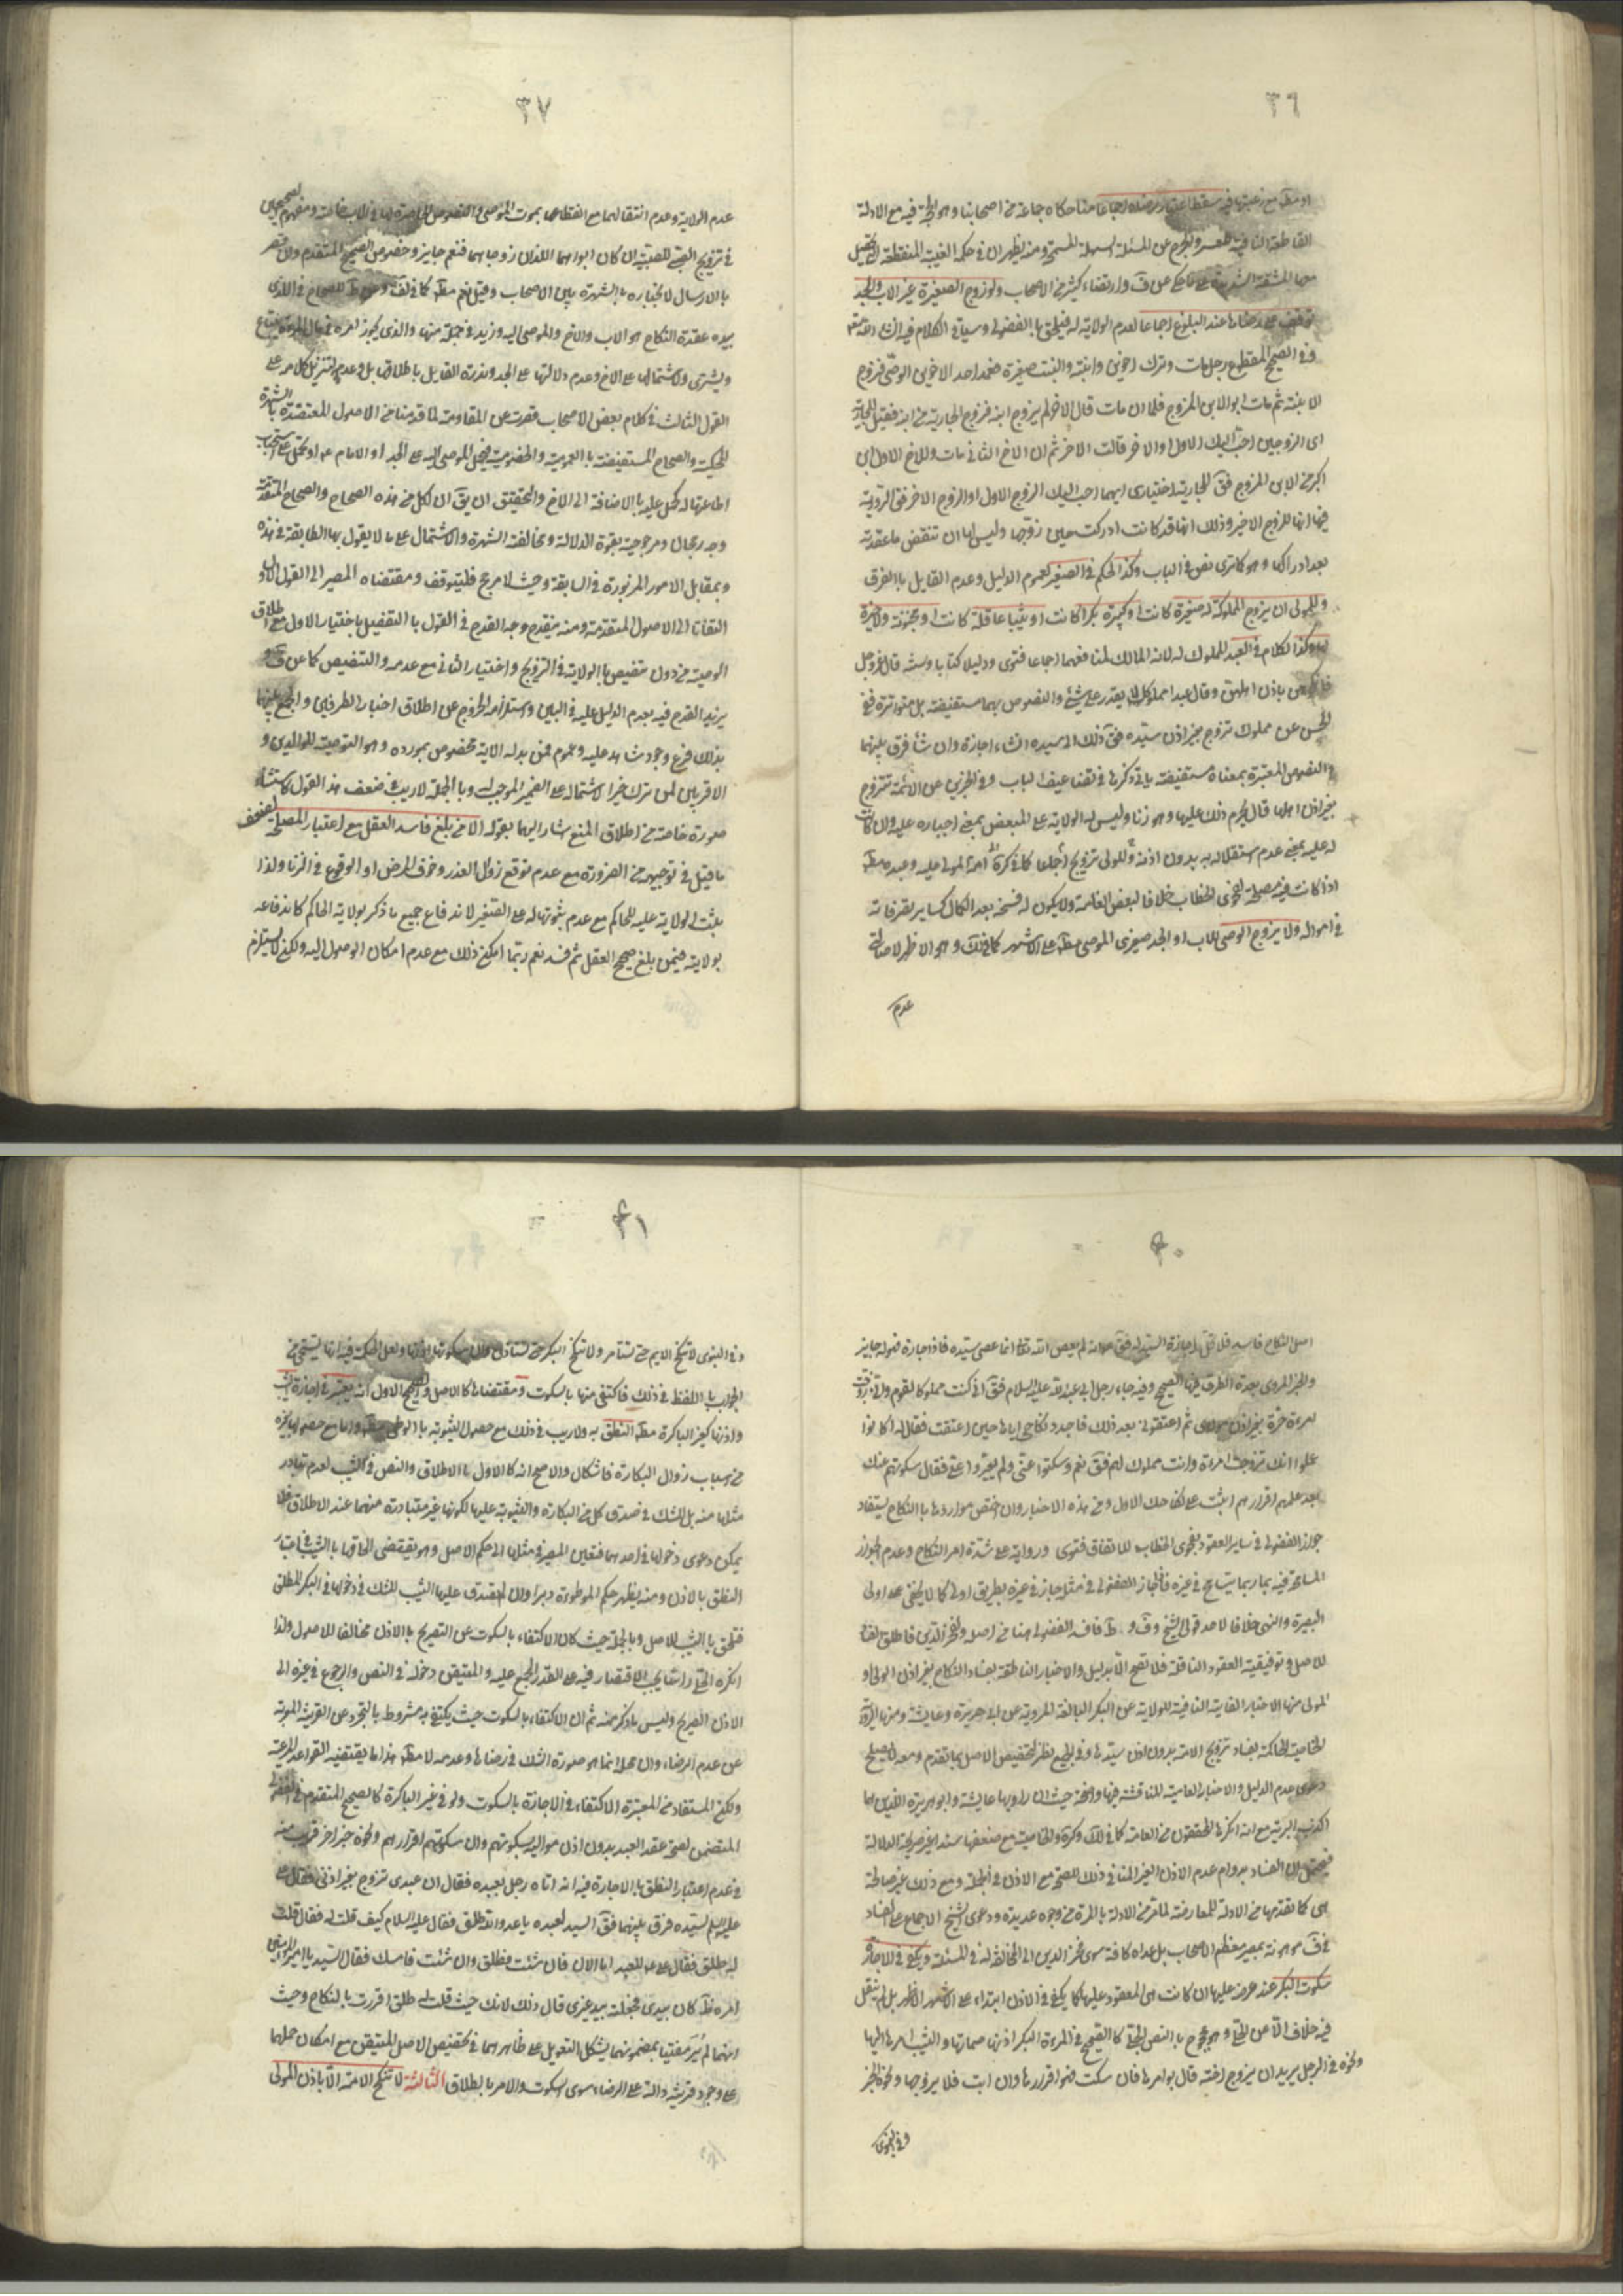 ٣٦
او مط مع رغبتها فيه سقط اعتبار رضاه اجماعا منا حكاه جماعة من اصحابنا وهو الحجة فيه مع الادلة
القاطعة النافية للعسر والحرج عن المسئلة السهلة السمحة ومنه يظهر ان في حكمه الغيبة المنقطعة التي يحصل
معها المشقة الشديدة على ما حكي عن ف وارتضاه كثير من الاصحاب ولو زوج الصغيرة غير الاب والجد
توقف على رضاها عند البلوغ اجماعا لعدم الولاية له فيلحق بالفضولي وسياتي الكلام فيه انشاء الله تعالى
وفي الصحيح المقطوع رجل مات وترك اخوين وابنة والبنت صغيرة فعمد احد الاخوين الوصي فزوج
الابنة ثم مات ابو الابن المزوج فلما ان مات قال الاخر لم يزوج ابنه فزوج الجارية من ابنه فقيل للجارية
اي الزوجين احب اليك الاول او الاخر قالت الاخر ثم ان الاخ الثاني مات وللاخ الاول ابن
اكبر من الابن المزوج فق للجارية اختياري ايهما احب اليك الزوج الاول او الزوج الاخر فق الرواية
فيها انها للزوج الاخير وذلك انها قد كانت ادركت حين زوجها وليس لها ان تنقض ما عقدته
بعد ادراكها وهو كما ترى نص في الباب وكذا الحكم في الصغير لعموم الدليل وعدم القايل بالفرق
وللمولى ان يزوج المملوكة له صغيرة كانت او كبيرة بكرا كانت او ثيبا عاقلة كانت او مجنونة ولا خيرة
لها وكذا الكلام في العبد المملوك له لانه المالك لمنافعهما اجماعا فتوى ودليلا كتابا وسنة قال عز وجل
فانكحوهن باذن اهلهن وقال عبدا مملوكا لا يقدر على شيء والنصوص بهما مستفيضة بل متواترة ففي
الحسن عن مملوك تزوج بغير اذن سيده فق ذلك الى سيده انشاء اجازه وان شاء فرق بينهما
والنصوص المعتبرة بمعناه مستفيضة ياتي ذكرها في تضاعيف الباب وفي الخبرين عن الامة تتزوج
بغير اذن اهلها قال يحرم ذلك عليها وهو زنا وليس له الولاية على المبعض بمعنى اجباره عليه وان كانت
له عليه بمعنى عدم استقلاله به بدون اذنه وللولي تزويج كما في كرة امة المولى عليه وعبده مط
اذا كانت فيه مصلحة لفحوى الخطاب خلافا لبعض العامة ولا يكون له فسخه بعد الكمال كساير تصرفاته
في امواله ولا يزوج الوصي للاب او الجد صغيري الموصي مط على الاشهر كما في لك وهو الاظهر لاصالة
عدم
٣٧
عدم الولاية وعدم انتقالهما مع انقطاعها بموت الموصي والنصوص الحاصرة لها في الاب خاصة ومفهوم الصحيحين
في تزويج الصبي للصبية ان كان ابواهما اللذان زوجاهما فنعم جايز وخصوص الصحيح المتقدم وان قصر
بالارسال لانجباره بالشهرة بين الاصحاب وقيل نعم مط كما في لف و ط للصحاح في الذي
بيده عقدة النكاح هو الاب والاخ والموصى اليه وزيد في جملة منها والذي يجوز امره في مال المراة يبتاع
ويشتري ولاشتمالها على الاخ وعدم دلالتها على الجد وندرة القايل باطلاقها بل وعدمه لتنزيل كلام
القول الثالث في كلام بعض الاصحاب قصرت عن المقاومة لما قدمنا من الاصول المعتضدة بالشهرة
المحكية والصحاح المستفيضة بالعمومية والخصوصية فيحمل الموصى اليه على الجد او الامام ع او يحمل على استحباب
اطاعتها له كحمل عليه بالاضافة الى الاخ والتحقيق ان يق ان لكل من هذه الصحاح والصحاح المتقدمة
وجه رجحان ومرجوحية بقوة الدلالة ومخالفة الشهرة والاشتمال على ما لا يقول بها الطايفة في هذه
وبمقابل الامور المزبورة في السابقة وحيث لا مرجح فليتوقف ومقتضاه المصير الى القول الاول
التفاتا الى الاصول المتقدمة ومنه ينقدح وجه القدح في القول بالتفصيل باختيار الاول مع اطلاق
الوصية من دون تنصيص بالولاية في التزويج واختيار الثاني مع عدمه والتنصيص كما عن ف
يزيد القدح فيه بعدم الدليل عليه في البين واستلزامه الخروج عن اطلاق اخبار الطرفين والجمع بينهما
بذلك فرع وجود شاهد عليه وعموم فمن بدله الاية مخصوص بمورده وهو التوصية للوالدين و
الاقربين لمن ترك خيرا لاشتماله على الضمير الموجب له وبالجملة لا ريب في ضعف هذا القول كاستثناء
صورة خاصة من اطلاق المنع مشار اليها بقوله الا من بلغ فاسد العقل مع اعتبار المصلحة لضعف
ما قيل في توجيهه من الضرورة مع عدم توقع زوال العذر وخوف المرض او الوقوع في الزنا ولذا
يثبت الولاية عليه للحاكم مع عدم ثبوتها له على الصغير لاندفاع جميع ما ذكر بولاية الحاكم كاندفاعه
بولايته فيمن بلغ صحيح العقل ثم فسد نعم ربما امكن ذلك مع عدم امكان الوصول اليه ولكن لا يستلزم
٤٠
اصل النكاح فاسد فلا تحل اجازة السيد له فق ع انه لم يعص الله تعالى انما عصى سيده فاذا اجازه فهو له جايز
والخبر المروي بعدة الطرق فيها الصحيح وفيه جاء رجل الى عبد الله عليه السلام فق اني كنت مملوكا لقوم واني تزوجت
امرءة حرة بغير اذن موالي ثم اعتقوني بعد ذلك فاجدد نكاحي اياها حين اعتقت فقال له اكانوا
علموا انك تزوجت امرءة وانت مملوك لهم فق نعم وسكتوا عني ولم يغيروا علي فقال سكوتهم عنك
بعد علمهم اقرار منهم اثبت على نكاحك الاول ومن هذه الاخبار وان اختص مواردها بالنكاح يستفاد
جواز الفضولي في ساير العقود بفحوى الخطاب للاتفاق فتوى ورواية على شدة امر النكاح وعدم جواز
المسامحة فيه بما ربما يتسامح في غيره فاذا جاز الفضولي في مثله جاز في غيره بطريق اولى كما لا يخفى على اولي
البصيرة والنهى خلافا لاحد قولي الشيخ وف و ط فافسد الفضولي هنا من اصله ولفخر الدين فاطلق لفقد
للاصل وتوقيفية العقود الناقلة فلا تصح الا بدليل والاخبار الناطقة بفساد النكاح بغير اذن الولي او
المولى منها الاخبار العامية النافية للولاية عن البكر البالغة المروية عن ابي هريرة وعايشة ومنها الرواية
الخاصية الحاكمة بفساد تزويج الامة بدون اذن سيدها وفي الجميع نظر لتخصيص الاصل بما تقدم ومعه لا يصلح
دعوى عدم الدليل والاخبار العامية المناقشة فيها واضحة حيث ان راويها عايشة وابو هريرة اللذين هما
اكذب البرية مع انه انكرها المحققون من العامة كما في لك وكرة والخاصية مع ضعفها سندا غير صريحة الدلالة
فيحتمل ان الفساد بدوام عدم الاذن الغير المنافي ذلك للصحة مع الاذن في الجملة ومع ذلك غير صالحة
هي كما تقدمها من الادلة للمعارضة لما مر من الادلة بالمرة من وجوه عديدة ودعوى الشيخ الاجماع على الفساد
في ف موهونة بمصير معظم الاصحاب بل عداه كافة سوى فخر الدين الى المخالفة له في المسئلة ويكفي في الاجازة
سكوت البكر عند عرضه عليها ان كانت هي المعقود عليها كما يكفي في الاذن ابتداء على الاشهر الاظهر بل لم ينقل
فيه خلاف الا عن الحلي وهو محجوج بالنص المحكي كالصحيح في المرءة البكر اذنها صماتها والثيب امرها اليها
ونحوه في الرجل يريد ان يزوج اخته قال يؤامرها فان سكتت فهو اقرارها وان ابت فلا يزوجها ونحوه الخبر
وفي النبوي
٤١
وفي النبوي لا تنكح الايم حتى تستامر ولا تنكح البكر حتى تستاذن وان سكوتها اذنها ولعل الحكمة فيه انها تستحيي من
الجواب باللفظ في ذلك فاكتفي منها بالسكوت ومقتضاها كالاصل والصحيح الاول انه يعتبر في اجازة الثيب
واذنها كغير الباكرة مط النطق به ولا ريب في ذلك مع حصول الثيوبة بالوطي مط واما مع حصولها بغيره
من اسباب زوال البكارة فاشكال والاصح انه كالاول بالاطلاق والنص في الثيب لعدم تبادر
مثلها منه بل للشك في صدق كل من البكارة والثيوبة عليها لكونها غير متبادرة منهما عند الاطلاق فلا
يمكن دعوى دخولها في احدهما فتعين المصير في مثلها الى حكم الاصل وهو يقتضي الحاقها بالثيب في اعتبار
النطق بالاذن ومنه يظهر حكم الموطوءة دبرا وان لم يصدق عليها الثيب للشك في دخولها في البكر المطلق
فتلحق بالثيب للاصل وبالجملة حيث كان الاكتفاء بالسكوت عن التصريح بالاذن مخالفا للاصول ولذا
انكره الحلي راسا يجب الاقتصار فيه على القدر المجمع عليه والمتيقن دخوله في النص والرجوع في غيره الى
الاذن الصريح وليس ما ذكر منه ثم ان الاكتفاء بالسكوت حيث يكتفي به مشروط بالتجرد عن القرينة المعربة
عن عدم الرضاء وان محله انما هو صورة الشك في رضاها وعدمه لا مط هذا ما يقتضيه القواعد المرعية
ولكن المستفاد من المعتبرة الاكتفاء في الاجازة بالسكوت ولو في غير الباكرة كالصحيح المتقدم في الفضولي
المتضمن لصحة عقد العبد بدون اذن مواليه بسكوتهم وان سكوتهم اقرار منهم ونحوه خبر اخر قريب منه
في عدم اعتبار النطق بالاجازة فيه انه اتاه رجل بعبده فقال ان عبدي تزوج بغير اذني فقال علي
عليه السلام لسيده فرق بينهما فق السيد لعبده يا عدو الله طلق فقال عليه السلام كيف قلت له فقال قلت
له طلق فقال علي ع للعبد اما الان فان شئت فطلق وان شئت فامسك فقال السيد يا امير المؤمنين
امر كان بيدي فجعلته بيد غيري قال ذلك لانك حيث قلت له طلق اقررت بالنكاح وحيث
انهما لم نر مفتيا بمضمونهما يشكل التعويل على ظاهرهما في تخصيص الاصل المتيقن مع امكان حملهما
على وجود قرينة دالة على الرضاء سوى السكوت والامر بالطلاق الثالثة لا تنكح الامة الا باذن المولى